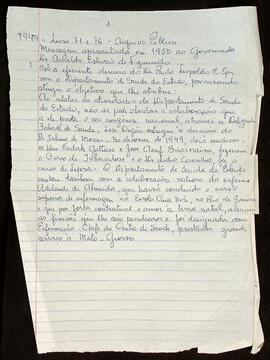 1949 - Livro 71 e 76 - Arquivo Público
Mensagem apresentada em 1950 ao Governado
Dr Arnaldo Estevão de Figueiredo
Sob a eficiente direção do Dr Paulo
com o Departamento de Saúde do Estado, procurando
atingir o objetivo que lhe atribue:
Ao relatar as atividades do Departamento de Saúde
do Estado, não se pode olvidar a colaboração que
a ele presta o seu congênere nacional, através da Delegacia
Federal de Saúde. Esse Órgão entregue a direção do
Dr de Morais. No decorrer de 1949, dois médicos:
os Drs e José fizeram
o Curso de Tuberculose e o Dr Pedro fez o
curso de lepra. O Departamento de Saúde do Estado
contou também com a colaboração valiosa da enferm
Adelaide de Almeida, que havia concluído o curso
superior de enfermagem na Escola Ana Neri, no Rio de Janeiro
e que por força contratual e amor à terra natal,
as funções que lhe são peculiares e foi designada como
Enfermeira-Chefe do Centro de Saúde, prestando grande
serviço à Mato-Grosso